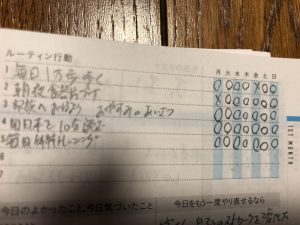 ルーティン行動
月 火 水 木 金 土 日
1 毎日1万歩歩く
2 朝夜食器出す
3 家族へおはよう おやすみのあいさつ
4 毎日本を10分読む
5 毎日体幹トレーニング
6
7
1ST MONTH
今日のよかったこと、今日気づいたこと
今日をもう一度やり直せるなら